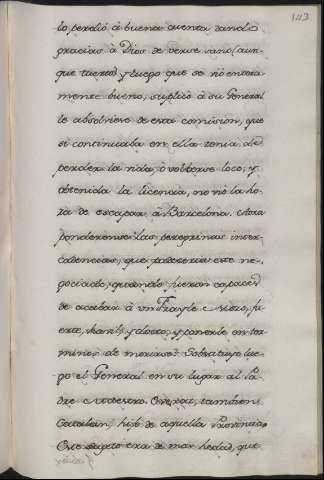 143
lo perdió à buena cuenta dando
gracias à Dios de verse sano (aun-
que tuerto) y luego que se vió entera-
mente bueno, suplicó à su General
le absolviese de esta comision, que
si continuaba en ella temia de
perder la vida, ò volverse loco, y
obtenida la licencia, no vió la ho-
ra de escapar à Barcelona.
ponderense las peregrinas inter-
cadencias, que padeceria este ne-
gociado, quando fueron capaces
de acabar à un Frayle recio, fu-
erte, habil y docto, y ponerle en ter-
minos de morirse? Sobstituye lue-
go el General en su lugar al Pa-
dre Maestro tambien
Catalan, hijo de aquella Provincia.
Este sugeto era de mas hedad, que